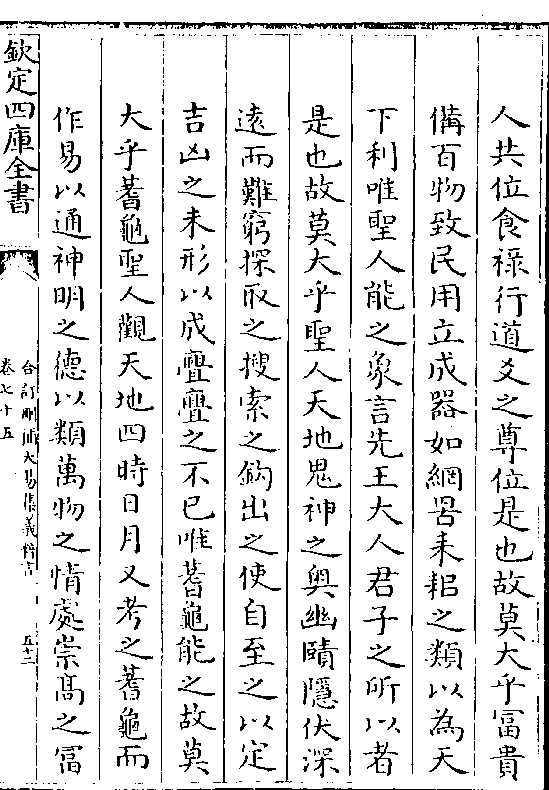 人共位食祿行道爻之尊位是也故莫大乎冨貴
備百物致民用立成器如網罟耒耜之類以為天
下利唯聖人能之象言先王大人君子之所以者
是也故莫大乎聖人天地鬼神之奥幽賾隱伏深
逺而難窮探取之搜索之鈎出之使自至之以定
吉凶之未形以成亹亹之不已唯蓍龜能之故莫
大乎蓍龜聖人觀天地四時日月又考之蓍龜而
作易以通神明之德以類萬物之情處崇髙之冨
欽定四庫全書
合訂刪補大易集義粹言
卷七十五
五十二